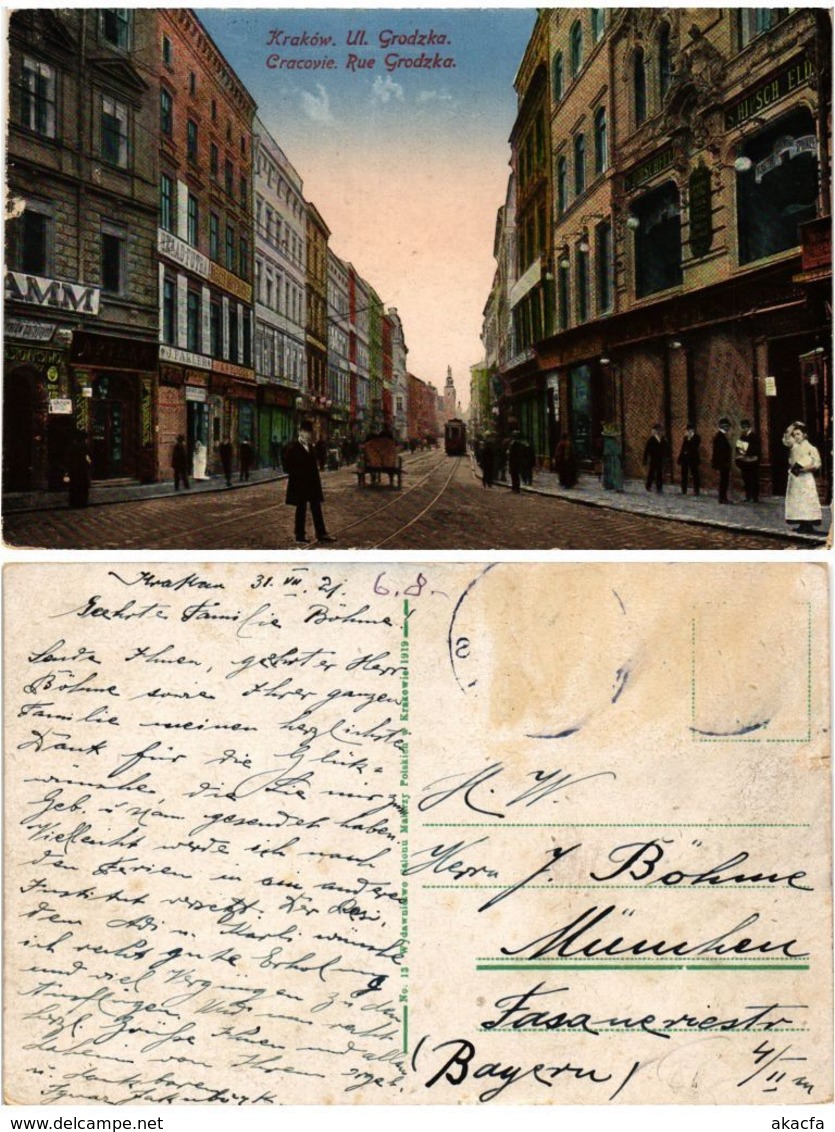 Kraków. Ul. Grodzka.
Cracovie. Rue Grodzka.
AMM
J. FARLER
S. HIRSCH
Krakau 31. VII. 21.
6.8.-
Geehrte Familie Böhme!
Sende Ihnen, geehrter Herr
Böhme sowie Ihrer ganzen
Familie meinen herzlichsten
Dank für die Glück-
wünsche, die Sie mir zum
Geb. u. Nam. gesendet haben.
Vielleicht werde ich nach
den Ferien in ein anderes
Institut versetzt. Der Resi,
dem Adi u. Karli wünsche
ich recht gute Erholung
und viel Vergnügen zu den
Ausflügen. Und nun recht
herzl. Grüße Ihnen und allen
daheim von Ihrem ergeb.
u. dankbaren
Ignaz
No. 13 Wydawnictwo Salonu Malarzy Polskich w Krakowie 1919
H. W.
Herrn J. Böhme
München
Fasaneriestr
4/II
(Bayern)
akacfa